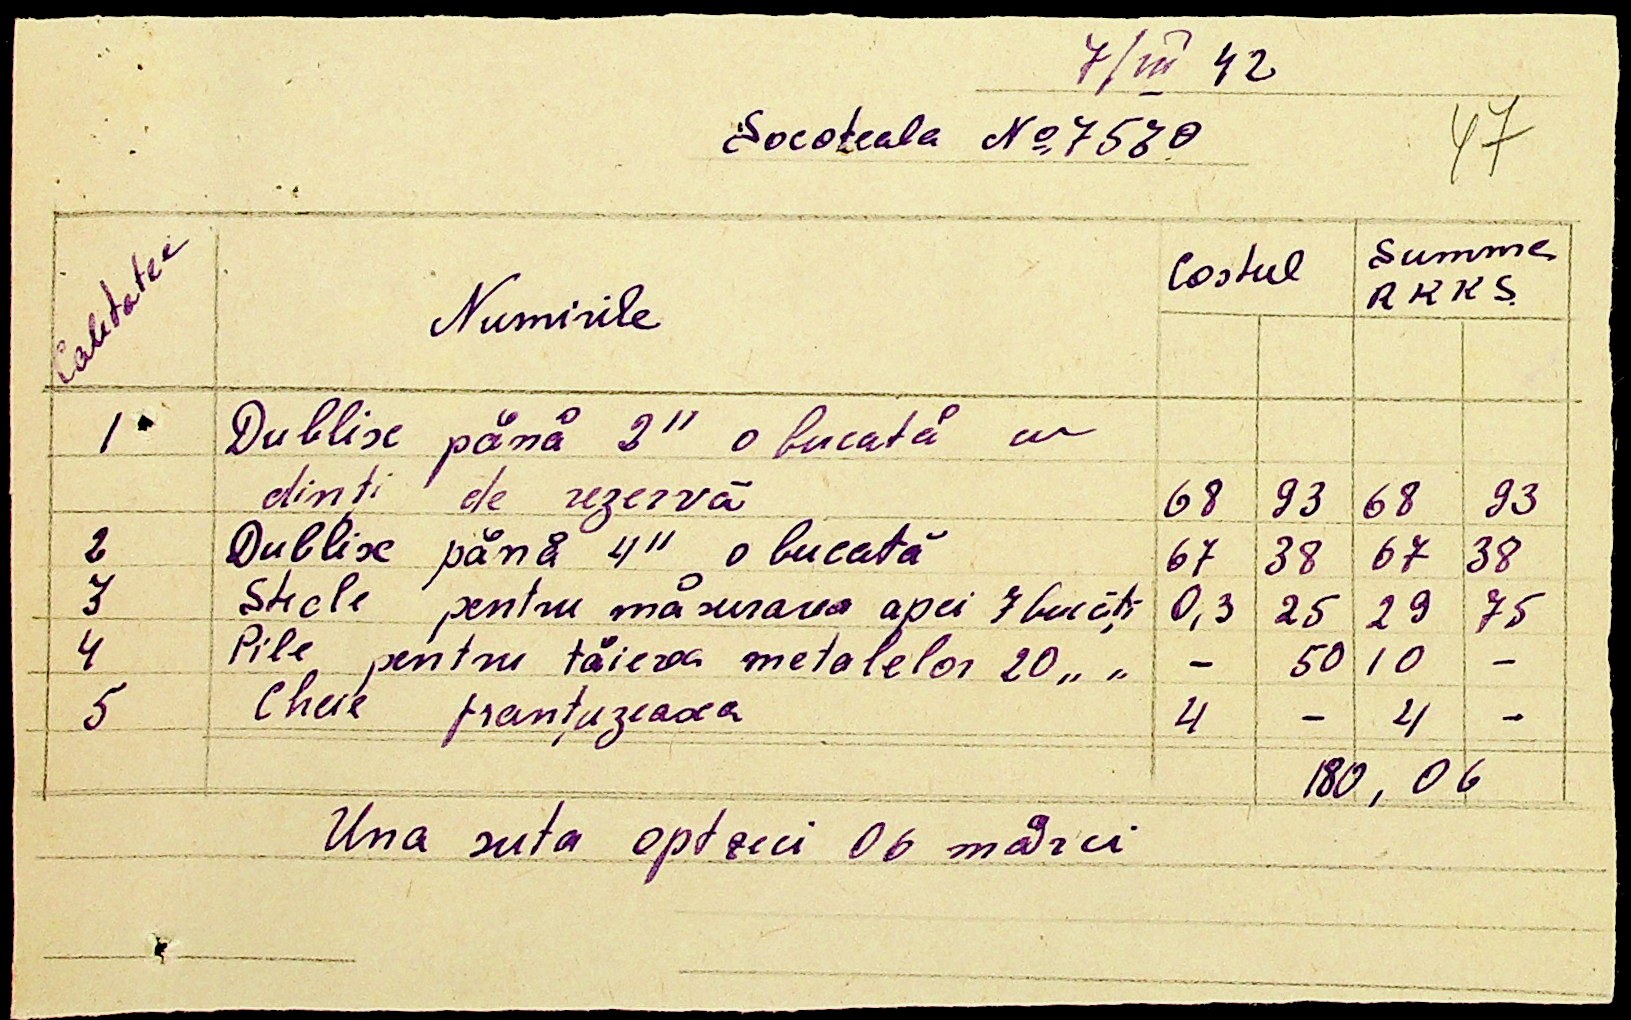 7/III 42
Socoteala № 7570
47
Calitatei Numirile Costul Summa
RKKS.
1 Dublixe până 2" o bucată cu
dinți de rezervă 68 93 68 93
2 Dublixe până 4" o bucată 67 38 67 38
3 Stecle pentru măsurarea apei 7 bucăți 0,3 25 29 75
4 Pile pentru tăierea metalelor 20 „ „ - 50 10 -
5 Cheie franțuzeasca 4 - 4 -
180,06
Una suta optzeci 06 mărci